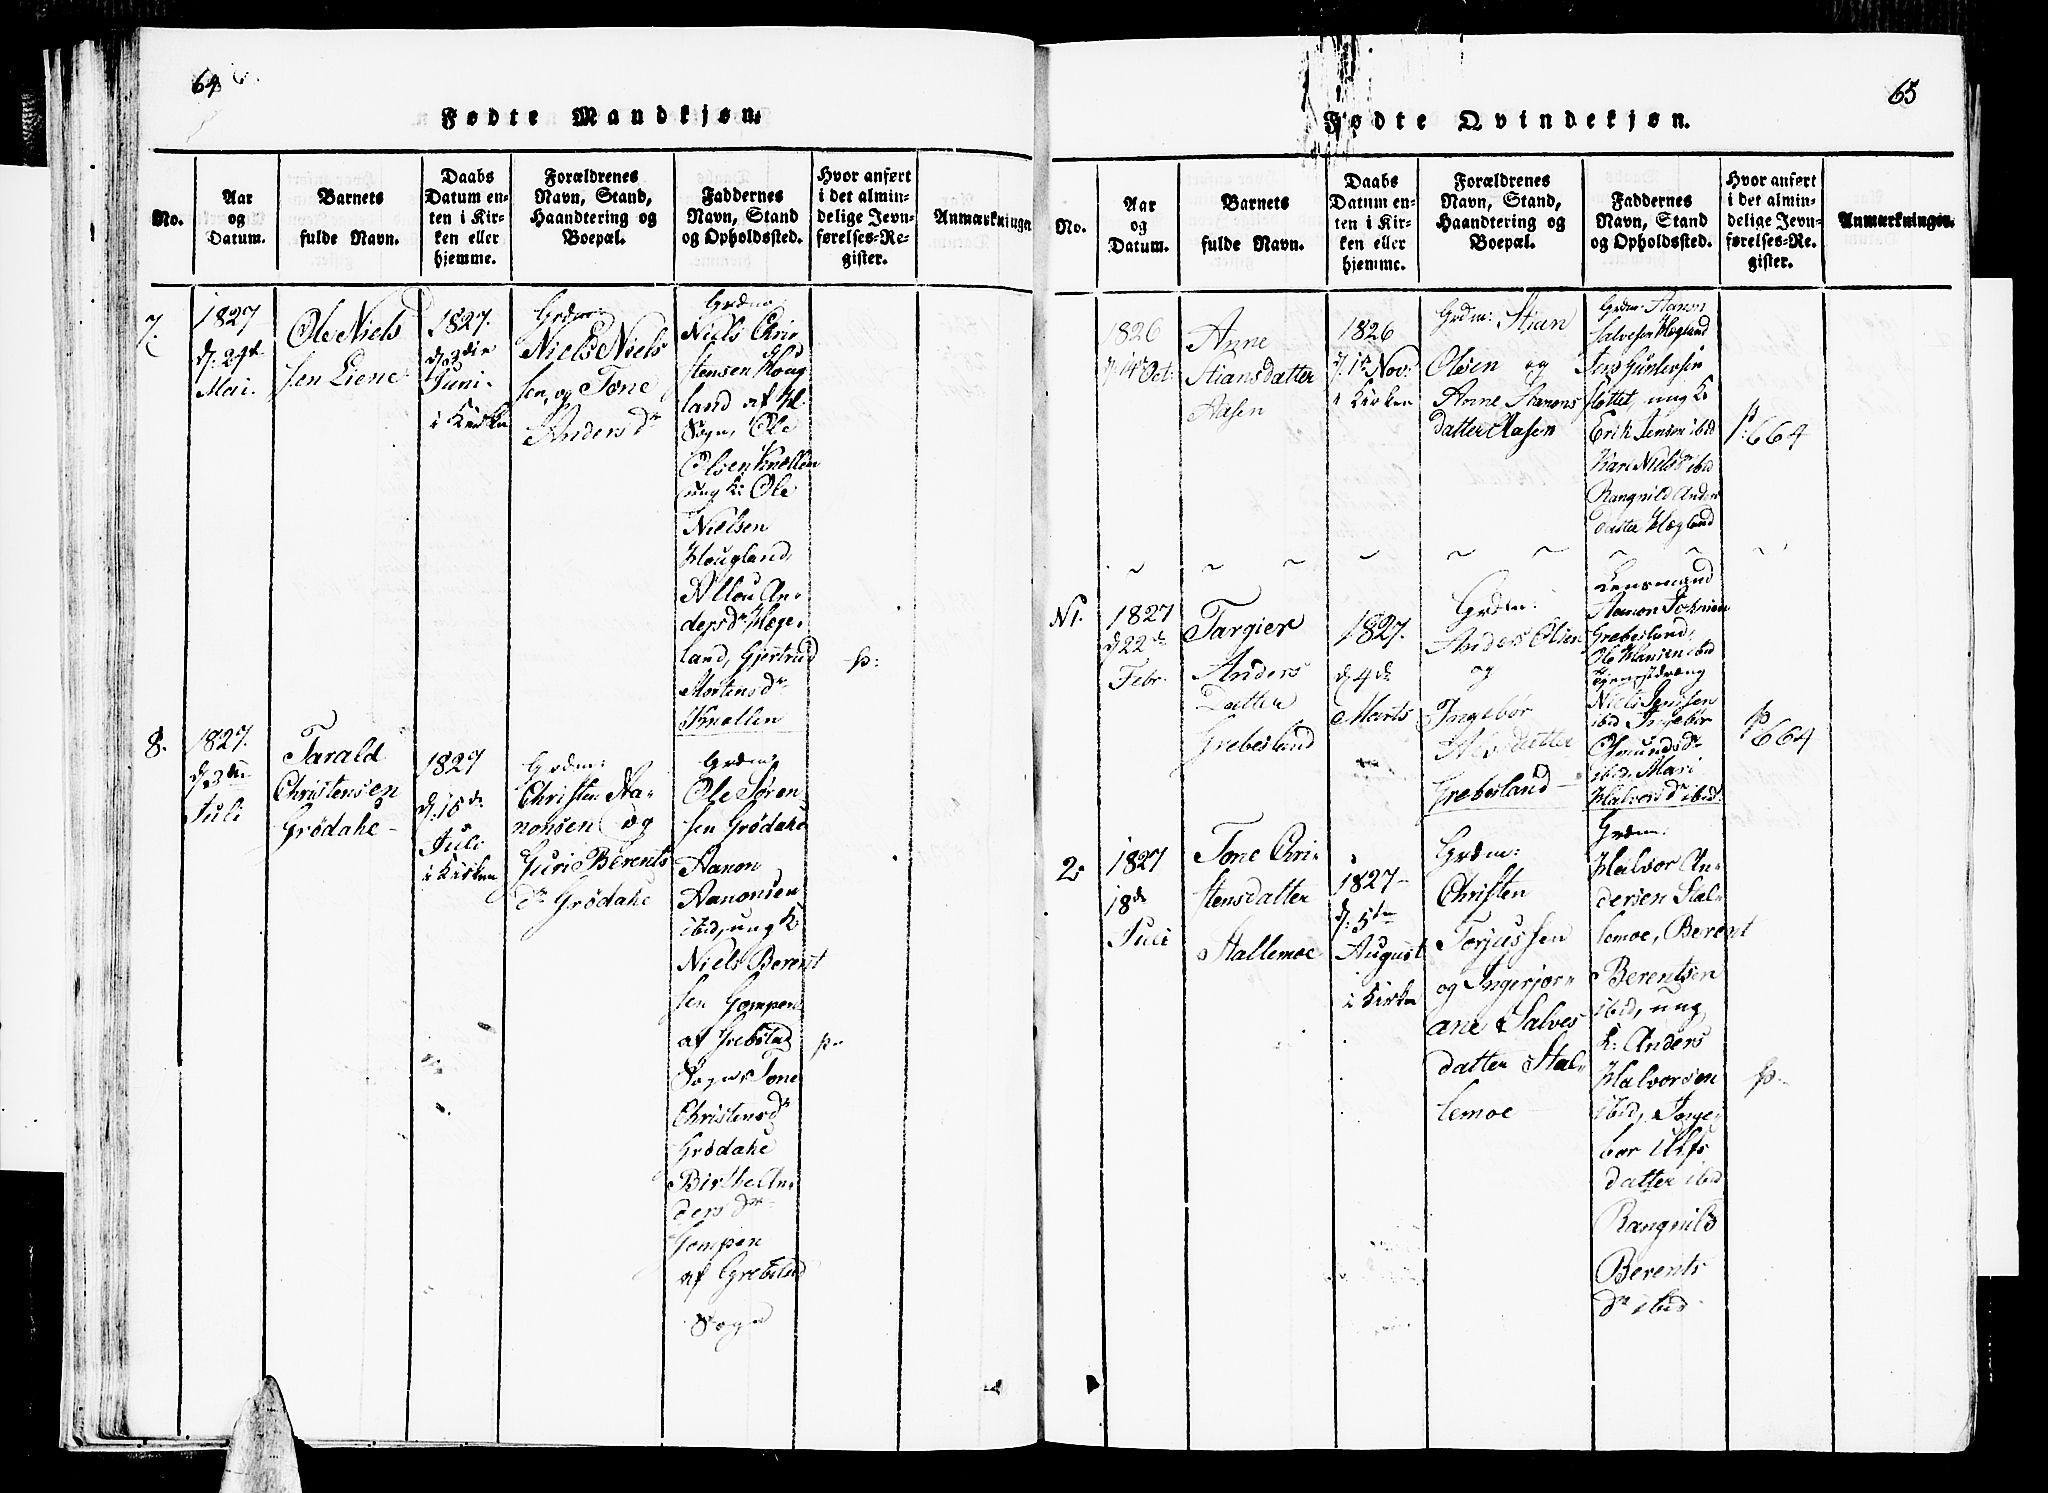 64
Fødte Mandkjøn.
No.
Aar
og
Datum.
Barnets
fulde Navn.
Daabs
Datum en-
ten i Kir-
ken eller
hjemme.
Forældrenes
Navn, Stand,
Haandtering og
Boepæl.
Faddernes
Navn, Stand
og Opholdssted.
Hvor anført
i det almin-
delige Jevn-
førelses-Re-
gister.
Anmærkninger
7.
1827
Mai.
Ole Niels
sen Liene
1827.
d. 3die
Juni
i Kirken
Grdm:
Niels Niels
sen, og Tone
Anders dr
Grdm:
Niels Chri
stensen Houg
land af H.
Sogn, Ole
Olsen Knollen
ung K: Ole
Nielsen
Hougland,
An-
dersdr Hæge-
land, Gjertrud
Mortensdr
Knollen
p:
8.
1827.
d. 3die
Juli
Tarald
Christensen
Grødahe
1827
d. 15de
Juli
i Kirken
Grdm:
Christen Aa-
nonsen og
Guri Berents
dr Grødahe
Grdm:
Ole Søren
sen Grødahe
Aanon
Aanonsen
ibid, ung K:
Niels Berent
sen Gompen
af Grebstad
Sogn, Tone
Christensdr
Grødahe
Birthe An-
ders dr
Gompen
af Grebstad
Sogn
p:
65
Fødte Qvindekjøn.
No.
Aar
og
Datum.
Barnets
fulde Navn.
Daabs
Datum en-
ten i Kir-
ken eller
hjemme.
Forældrenes
Navn, Stand,
Haandtering og
Boepæl.
Faddernes
Navn, Stand
og Opholdssted.
Hvor anført
i det almin-
delige Jevn-
førelses-Re-
gister.
Anmærkninger.
1826
d. 14de Oct:
Anne
Stiansdatter
Aasen
1826
d. 1te Nov:
i Kirken
Grdm: Stian
Olsen og
Anne Aanons
datter Aasen
Grdm: Aanon
Salvesen Hægland
Jens Guntersen
Slottet, ung K:
Erik Jensen ibid
Kari Nielsdr ibid
Rangnild Anders
datter Hægland
p: 664
N1.
1827
d. 22de
Febr.
Targier
Anders
Datter
Grebesland
1827.
d. 4de
Marts
Grdm:
Anders Olsen
og
Ingebor
datter
Grebesland
Lensmand
Aanon
Grebesland,
Ole Hansen ibid
Niels Jensen
ibid, Ingebor
Omundsdr
ibid, Mari
Halvorsdr ibid
p 664
2.
1827
18de
Juli
Tone Chri-
stensdatter
Stallemoe
1827
d. 5te
August
i Kirken
Grdm:
Christen
Torjussen
og Ingerjor-
ane Salves
datter Stal-
lemoe
Grdm:
Halvor An-
dersen Stal-
lemoe, Berent
Berentsen
ibid, ung
K: Anders
Halvorsen
ibid, Inge-
bor Ulfs
datter ibid
Rangnild
Berents
dr ibid
p.